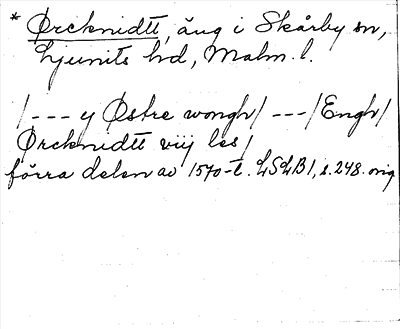 * Ørcknidtt, äng i Skårby sn,
Ljunits hd, Malm. l.
/--- y Østre wongh/ ---/Engh/
Ørcknidtt vij les/
förra delen av 1570-t. LSLB1, s. 248. orig